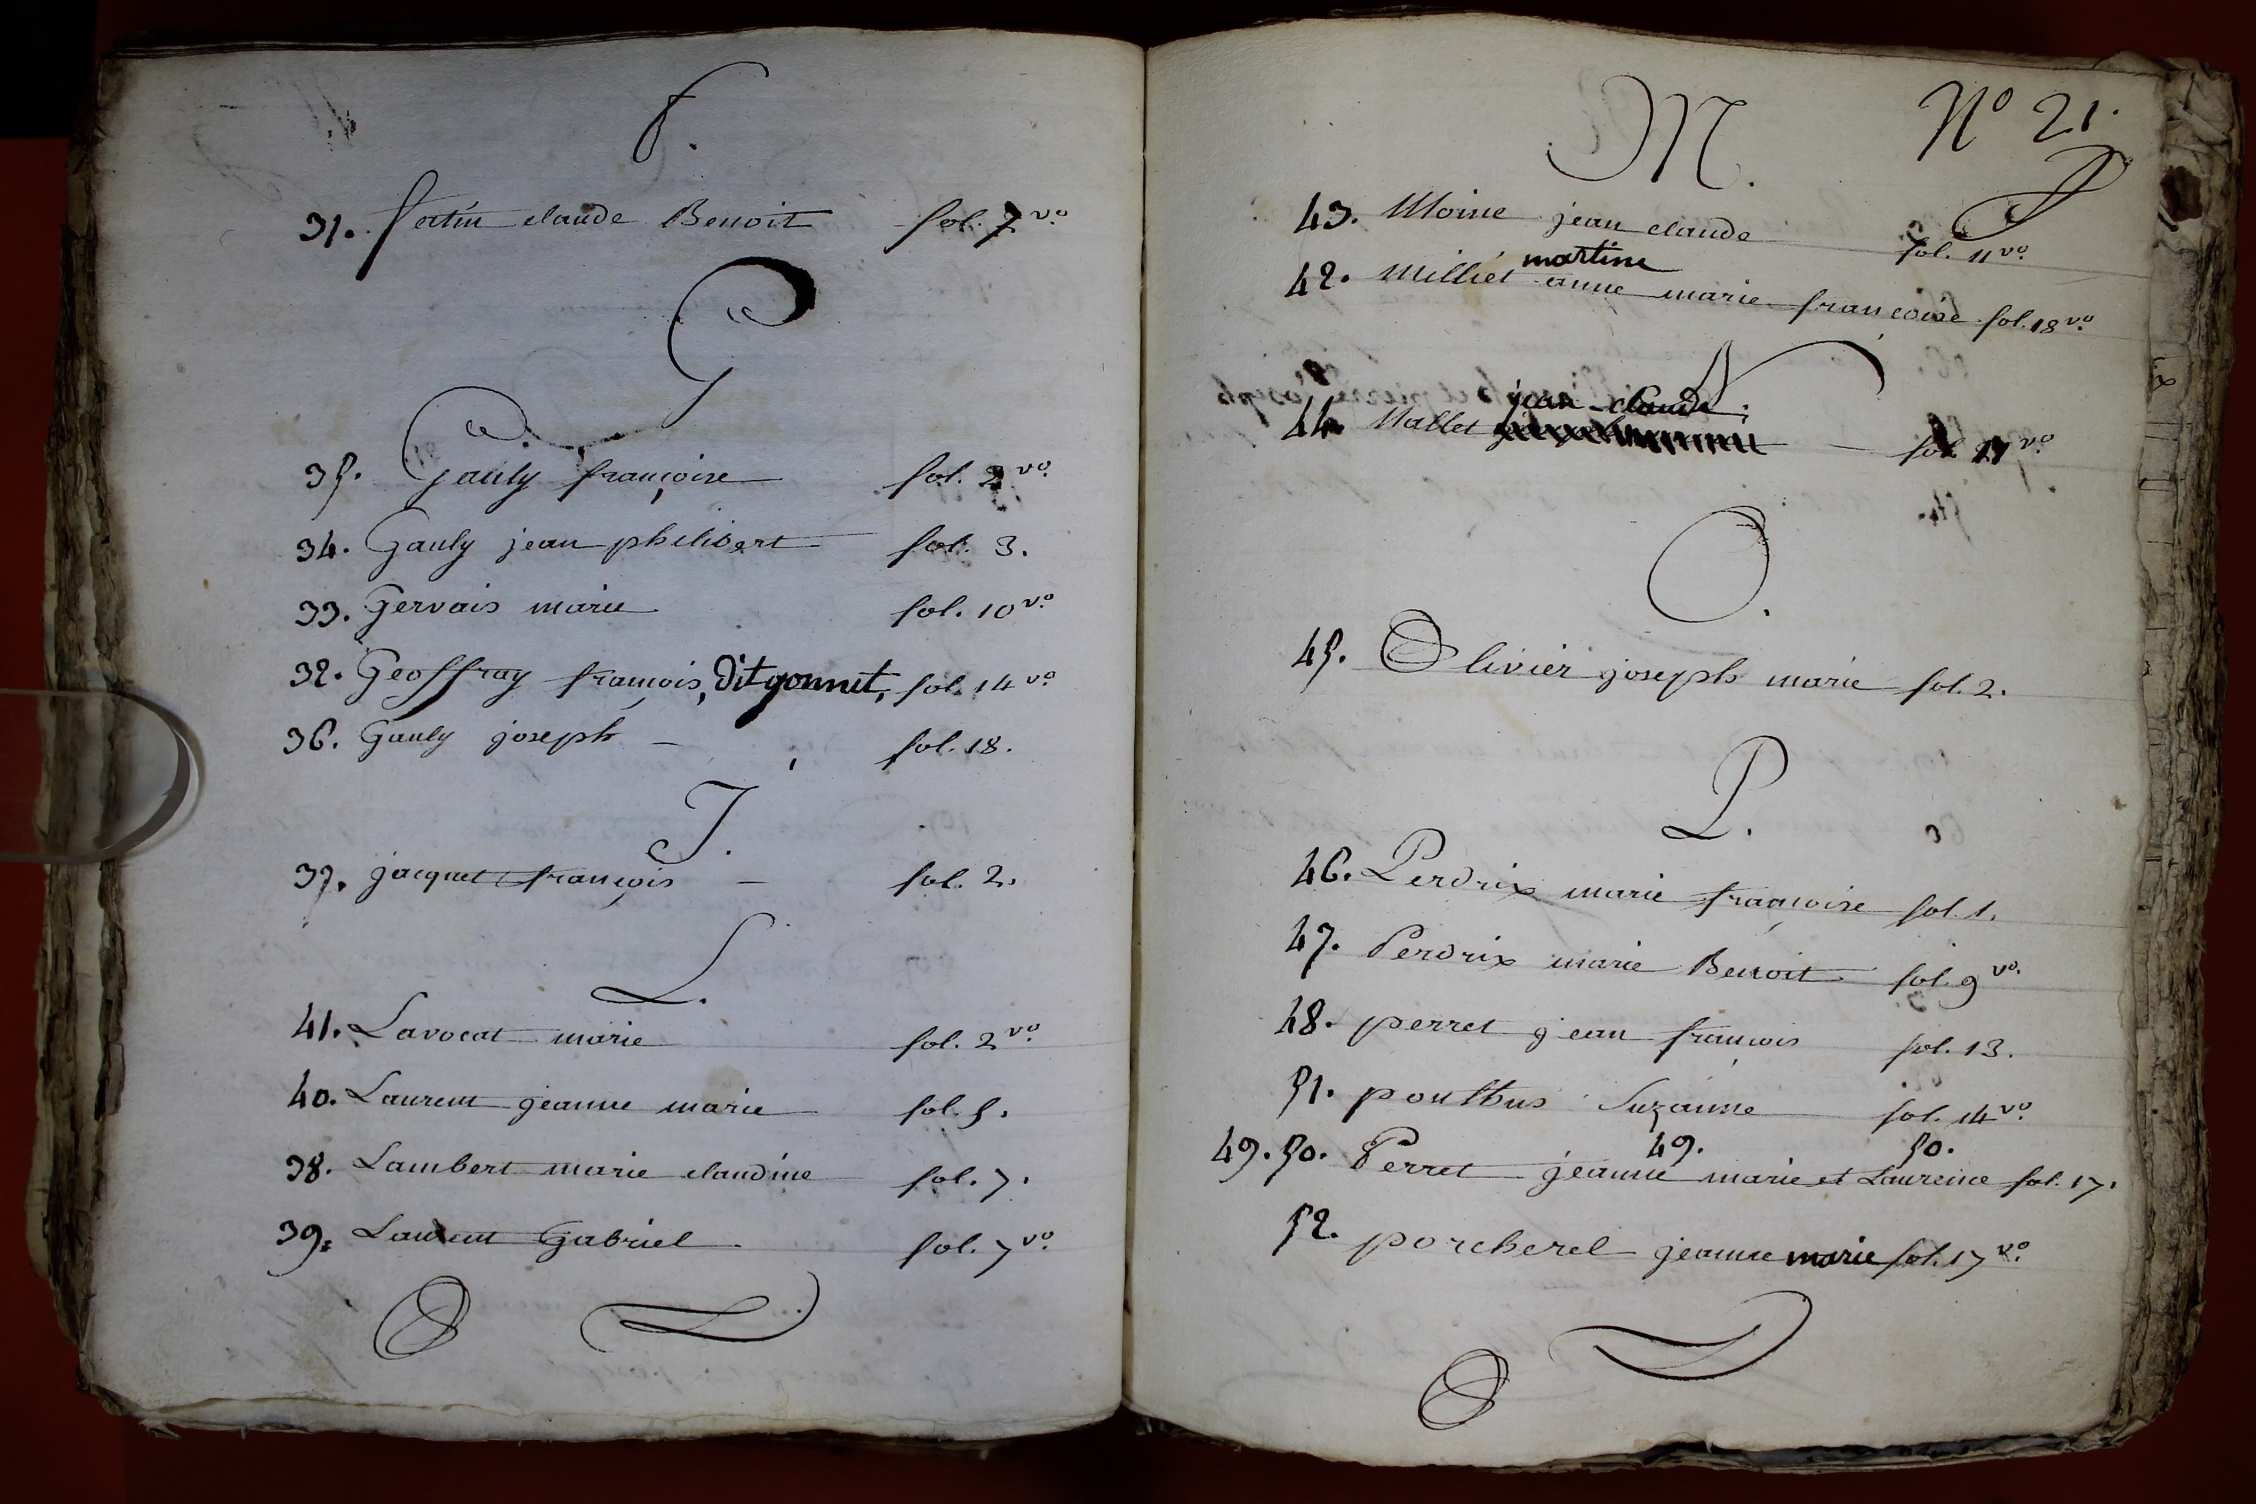 F.
31. fatin claude Benoit fol. 7 vo.
G
35. Gauly françoise fol. 2 vo.
34. Gauly jean philibert fol. 3.
33. Gervais marie fol. 10 vo.
32. Geoffray françois, dit gonnet, fol. 14 vo
36. Gauly joseph – fol. 18.
J.
37. jacquet françois – fol. 2.
L.
41. Lavocat marie fol. 2 vo.
40. Laurent jeanne marie fol. 5.
38. Lambert marie claudine fol. 7.
39. Laurent Gabriel fol. 7 vo.
M. No 21.
43. Moine jean claude fol. 11 vo.
martine
42. Milliet anne marie françoise fol. 18 vo.
N
jean claude
44. Nallet – fol. 17 vo.
O.
45. Olivier joseph marie fol. 2.
P.
46. Perdrix marie françoise fol. 1.
47. Perdrix marie Benoit fol. 9 vo.
48. perret jean françois fol. 13.
51. poulthus Suzanne fol. 14 vo.
49. 50.
49. 50. Perret jeanne marie et Laurence fol. 17.
52. porcherel jeanne marie fol. 17 vo.